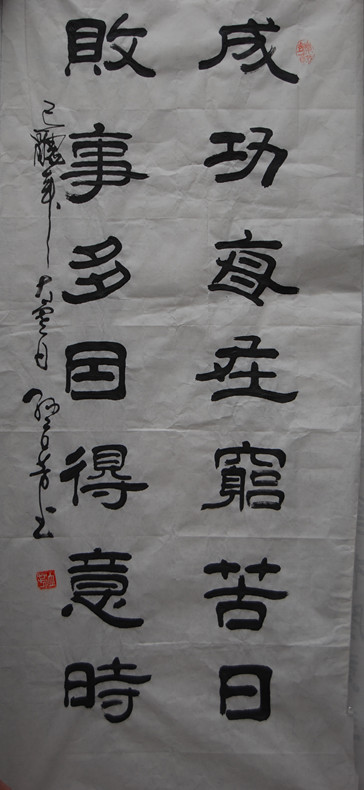 成功每在窮苦日
敗事多因得意時
己醜年大雪日
书